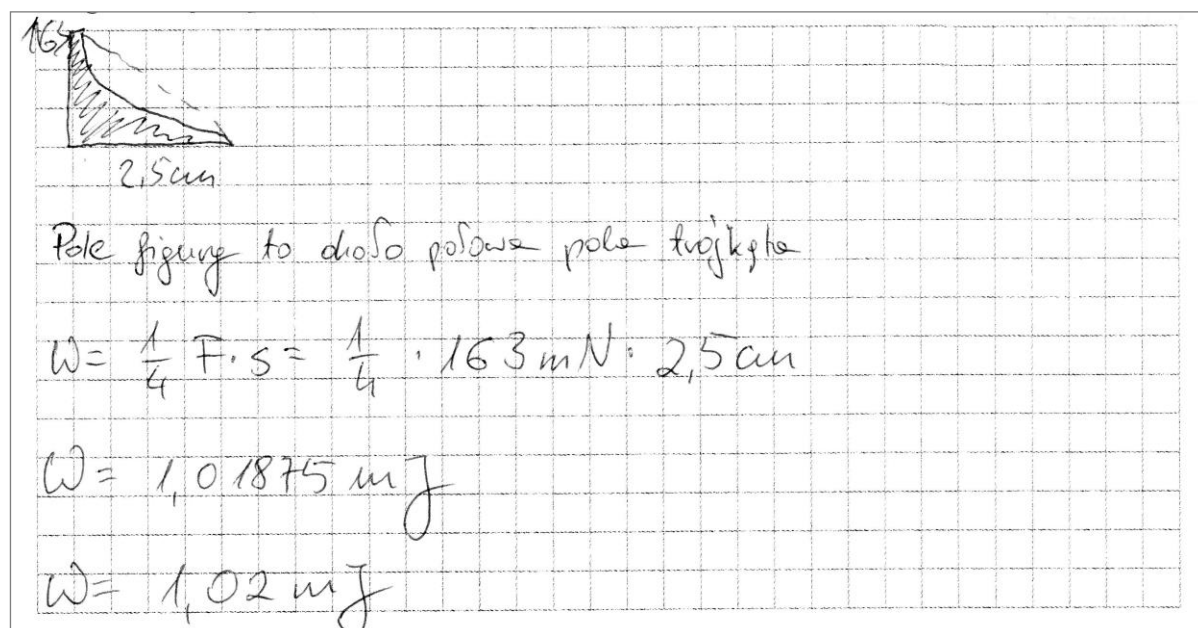 163
2,5cm
Pole figury to około połowa pola trójkąta
W= 1/4 F·s= 1/4 · 163mN· 2,5cm
W= 1,01875 mJ
W= 1,02 mJ